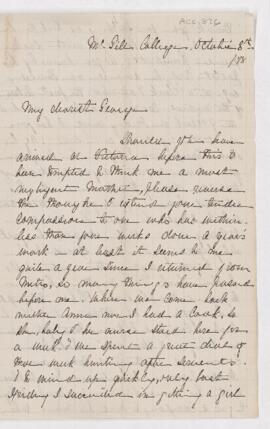 ACC. 376
Mt. Pile Cottage. October 8th
/88
My dearest George
Should you have
arrived at Victoria before this I
fear tempted to think me a most
negligent Mother, please excuse
the thought & extend your tender
compassions to one who has within
less than four weeks done a year's
work - at least it seems to me
quite a year since I returned from
Metis, so many things have passed
before me. When we came back
neither Anne nor I had a Cook, so
she, baby & the nurse staid here for
a week. & we spent a great deal of
that week hunting after Servants.
I succeeded in getting a girl